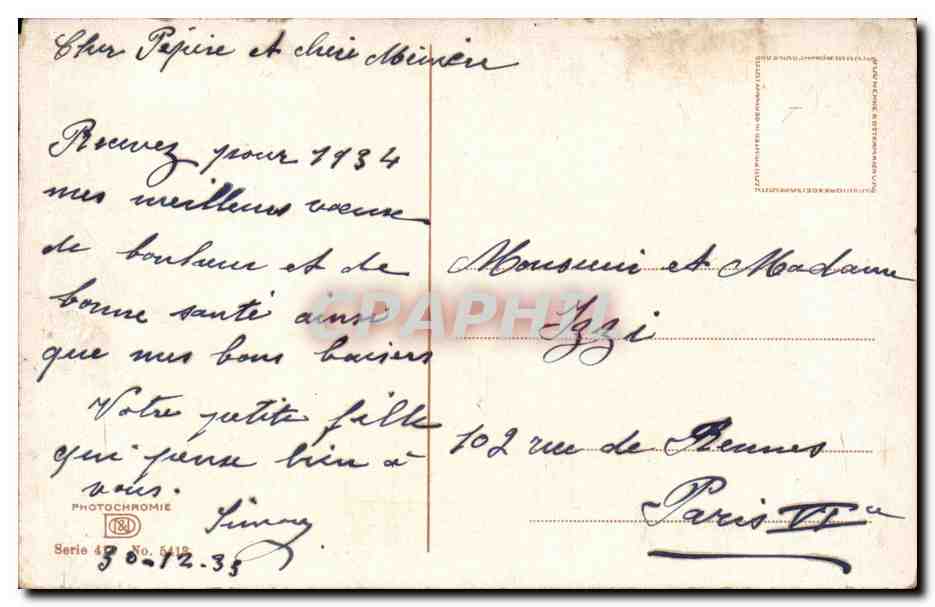 Cher Pépère et chère Mémère
Recevez pour 1934
mes meilleurs voeux
de bonheur et de
bonne santé ainsi
que mes bons baisers
Votre petite fille
qui pense bien à
vous.
PHOTOCHROMIE
Serie 41 No. 5412
30-12-33
CPAPHIL
Monsieur et Madame
Izzi
102 rue de Rennes
Paris VIe